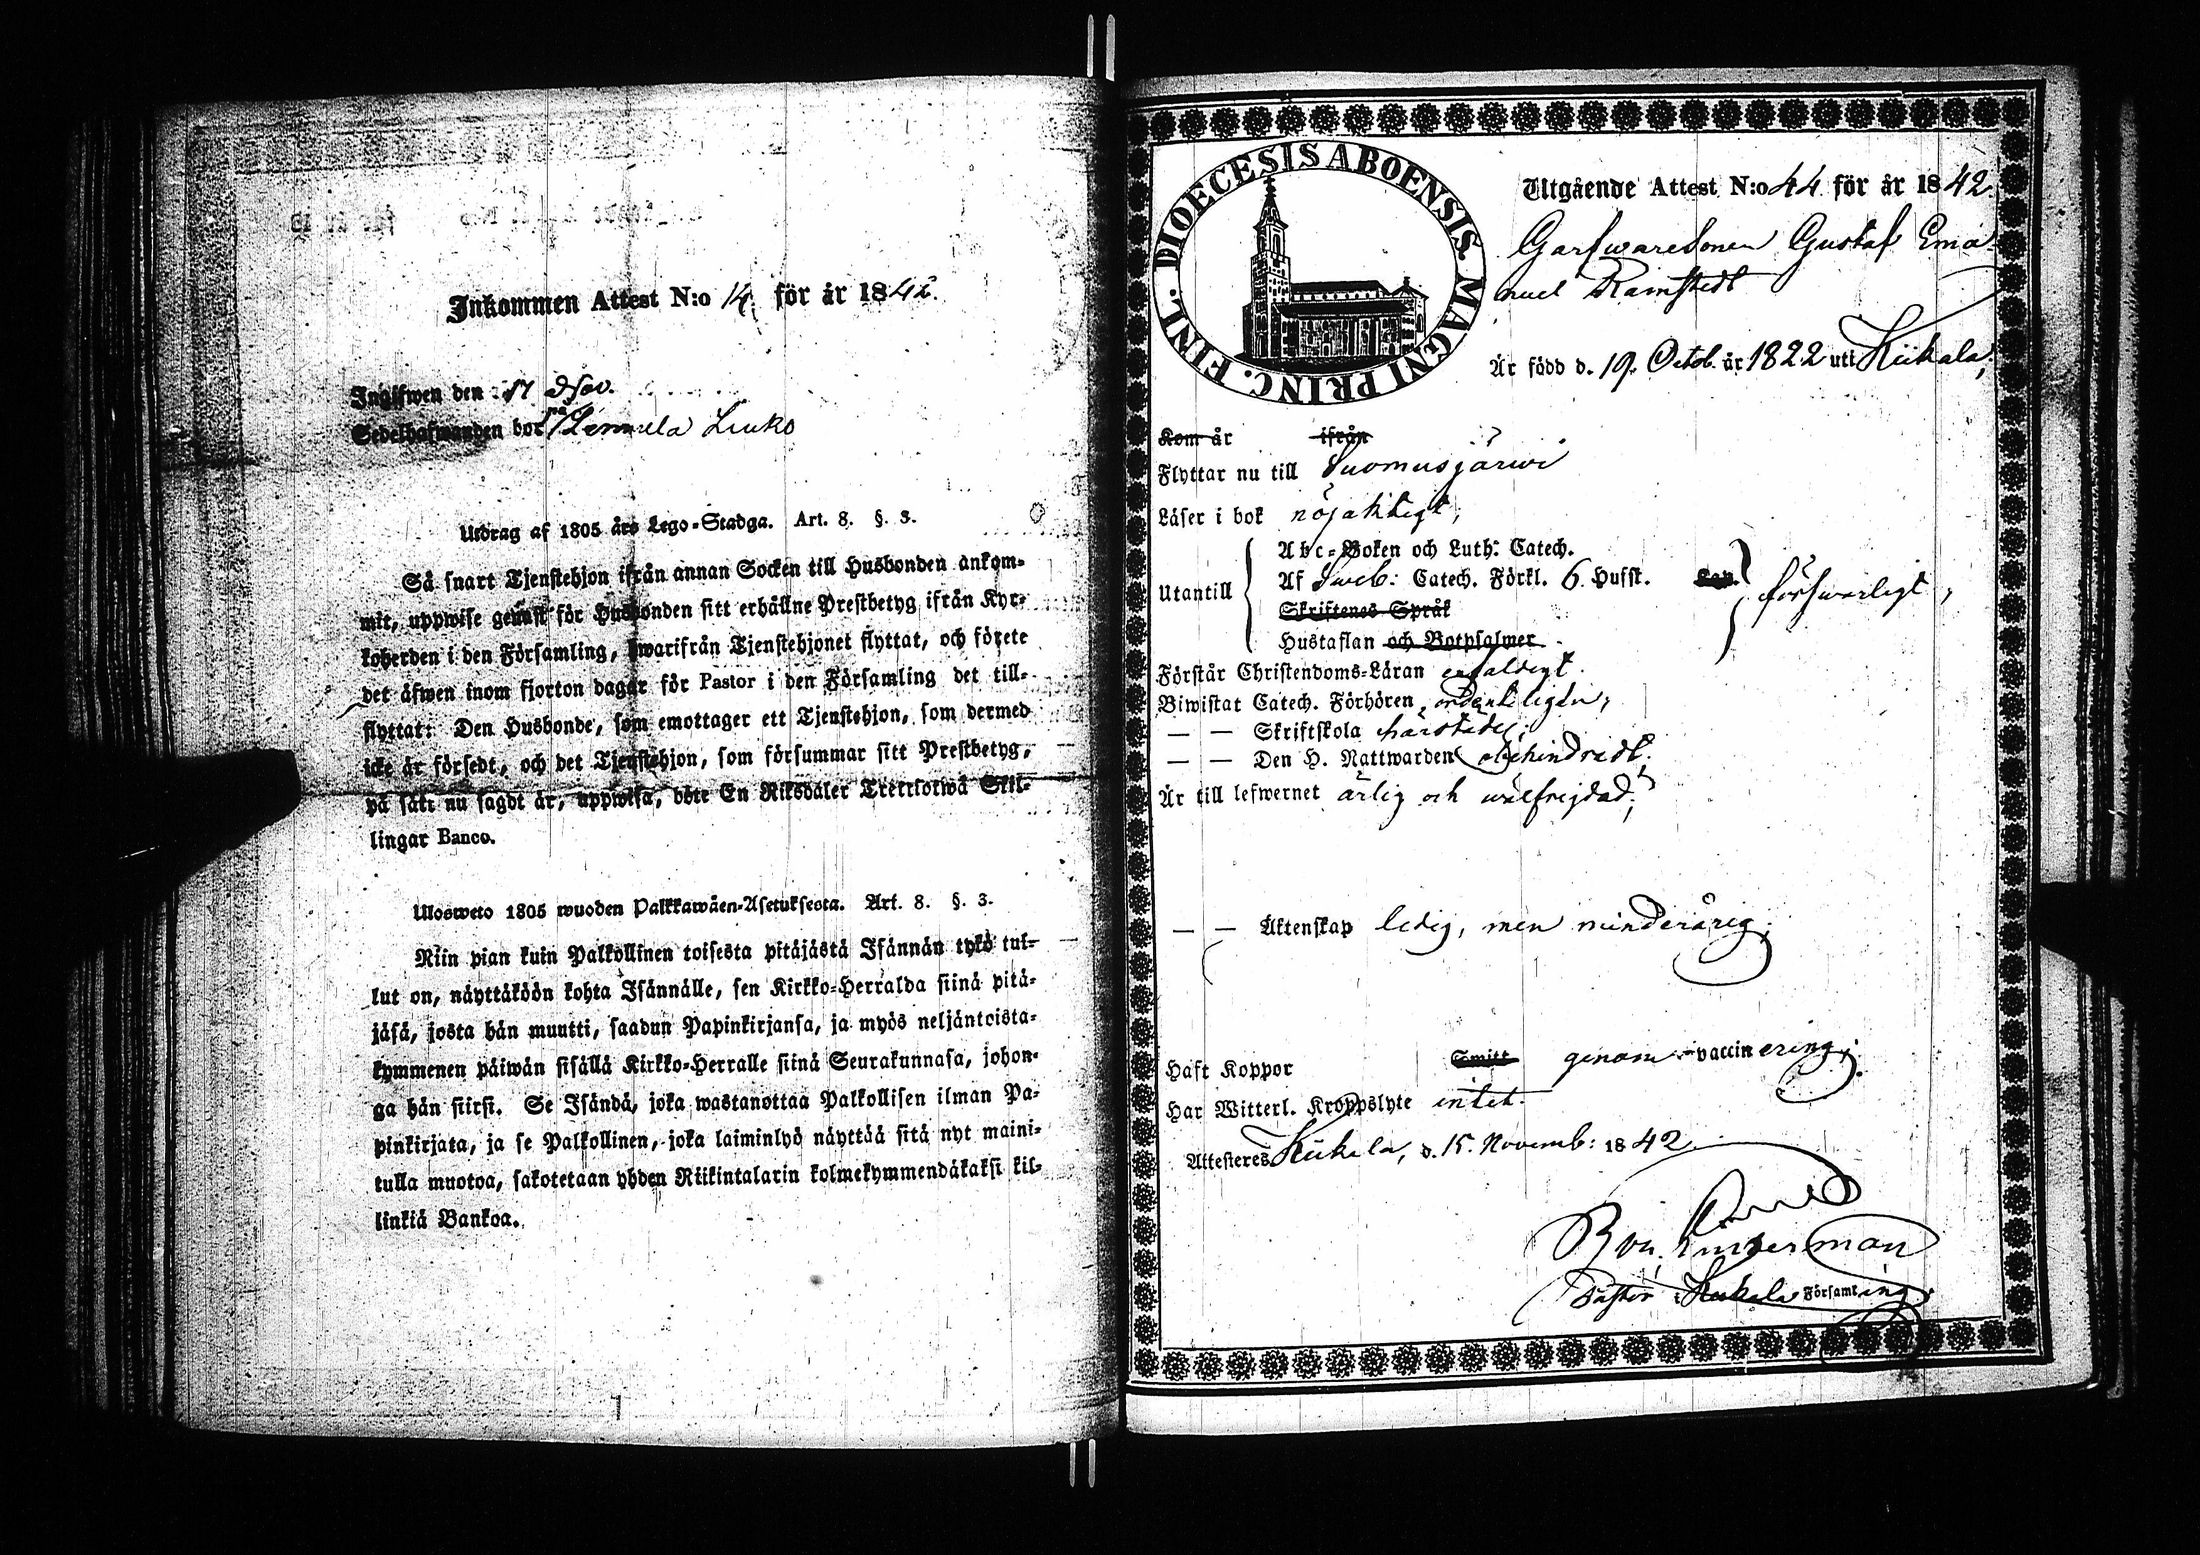 Inkommen Attest N:o 14. för år 1842.
Ingifwen den 17 Nov.
Sedelhafwanden bor på Lemula Liuko
Utdrag af 1805 års Lego-Stadga. Art. 8. §. 3.
Så snart Tjenstehjon ifrån annan Socken till Husbonden ankom-
mit, uppwise genast för Husbonden sitt erhållne Prestbetyg ifrån Kyr-
koherden i den Församling, hwarifrån Tjenstehjonet flyttat, och förete
det äfwen inom fjorton dagar för Pastor i den Församling det till-
flyttat: Den Husbonde, som emottager ett Tjenstehjon, som dermed
icke är försedt, och det Tjenstehjon, som försummar sitt Prestbetyg,
på sätt nu sagdt är, uppwisa, böte En Riksdaler Trettiotwå Skil-
lingar Banco.
Ulosweto 1805 wuoden Palkkawäen-Asetuksesta. Art. 8. §. 3.
Niin pian kuin Palkollinen toisesta pitäjästä Isännän tykö tul-
lut on, näyttäköön kohta Isännälle, sen Kirkko-Herralda siinä pitä-
jäsä, josta hän muutti, saadun Papinkirjansa, ja myös neljäntoista-
kymmenen päiwän sisällä Kirkko-Herralle siinä Seurakunnasa, johon-
ga hän siirsi. Se Isändä, joka wastanottaa Palkollisen ilman Pa-
pinkirjata, ja se Palkollinen, joka laiminlyö näyttää sitä nyt maini-
tulla muotoa, sakotetaan yhden Riikintalarin kolmekymmendäkaksi kil-
linkiä Bankoa.
DIOECESIS ABOENSIS MAGNI PRINC. FINL.
Utgående Attest N:o 44 för år 1842.
Garfwaresonen Gustaf Ema-
nuel Ramstedt
Är född d. 19. Octob. år 1822 uti Kiikala,
Kom år ifrån
Flyttar nu till Suomusjärwi
Läser i bok nöjaktigt,
Utantill
Abc-Boken och Luth: Catech.
Af Sweb: Catech. Förkl. 6 Hufst. Kap.
Skriftenes Språk
Hustaflan och Botpsalmer
försvarligt,
Förstår Christendoms-Läran enfaldigt.
Biwistat Catech. Förhören ordenteligen,
— — Skriftskola härstädes,
— — Den H. Nattwarden obehindradt,
Är till lefwernet ärlig och wälfrejdad,
— — Äktenskap ledig, men minderårig,
Haft Koppor Smitt genom vaccinering,
Har Witterl. Kroppslyte intet.
Attesteres Kiikala, d. 15. Novemb: 1842.
Pastor i Kiikala Församling.